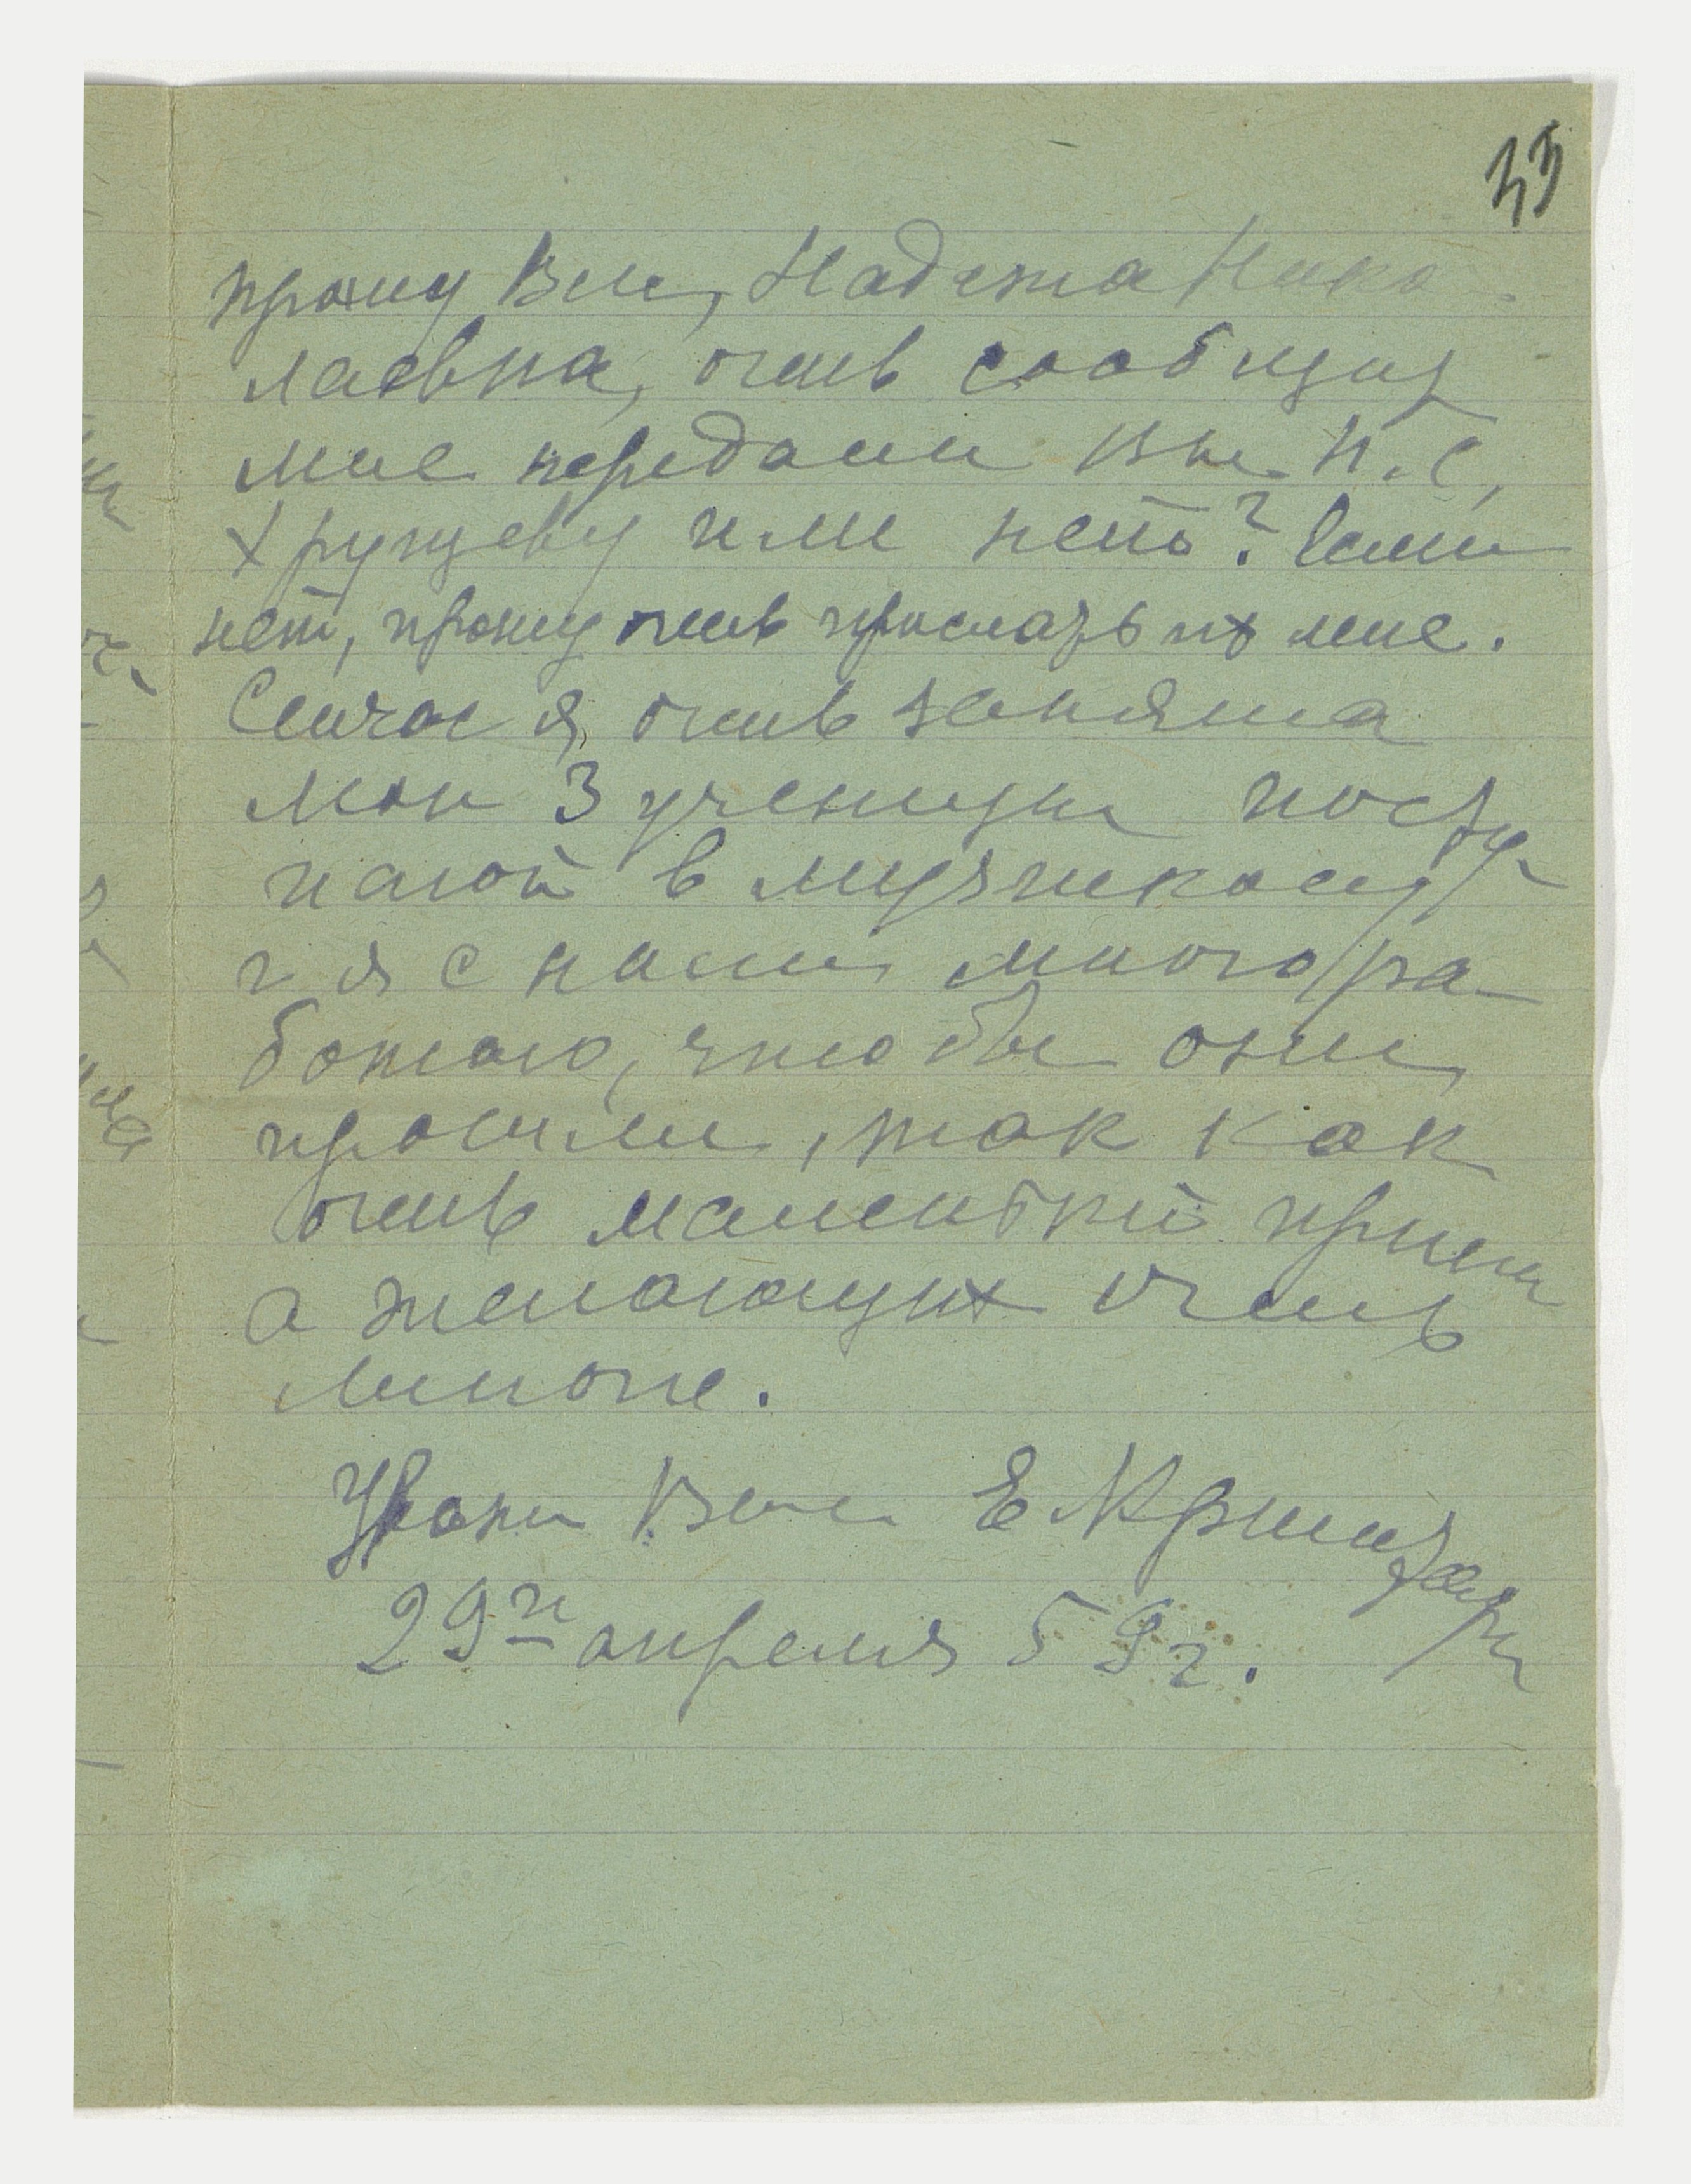 35
прошу Вас, Надежда Нико-
лаевна, очень сообщить
мне передали Вы Н. С.
Хрущеву или нет? Если
нет, прошу очень прислать их мне.
Сейчас я очень занята
мои 3 ученицы посту-
пают в
и я с ними много ра-
ботаю, чтобы они
прошли, так как
очень маленький прием
а желающих очень
много.
Уваж Вас Е
29го апреля 59 г.